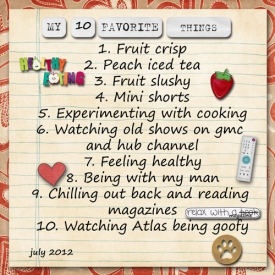 MY 10 FAVORITE THINGS
HEALTHY
EATING
1. Fruit crisp
2. Peach iced tea
3. Fruit slushy
4. Mini shorts
5. Experimenting with cooking
6. Watching old shows on gmc
and hub channel
7. Feeling healthy
8. Being with my man
9. Chilling out back and reading
magazines
relax with a book
10. Watching Atlas being goofy
july 2012